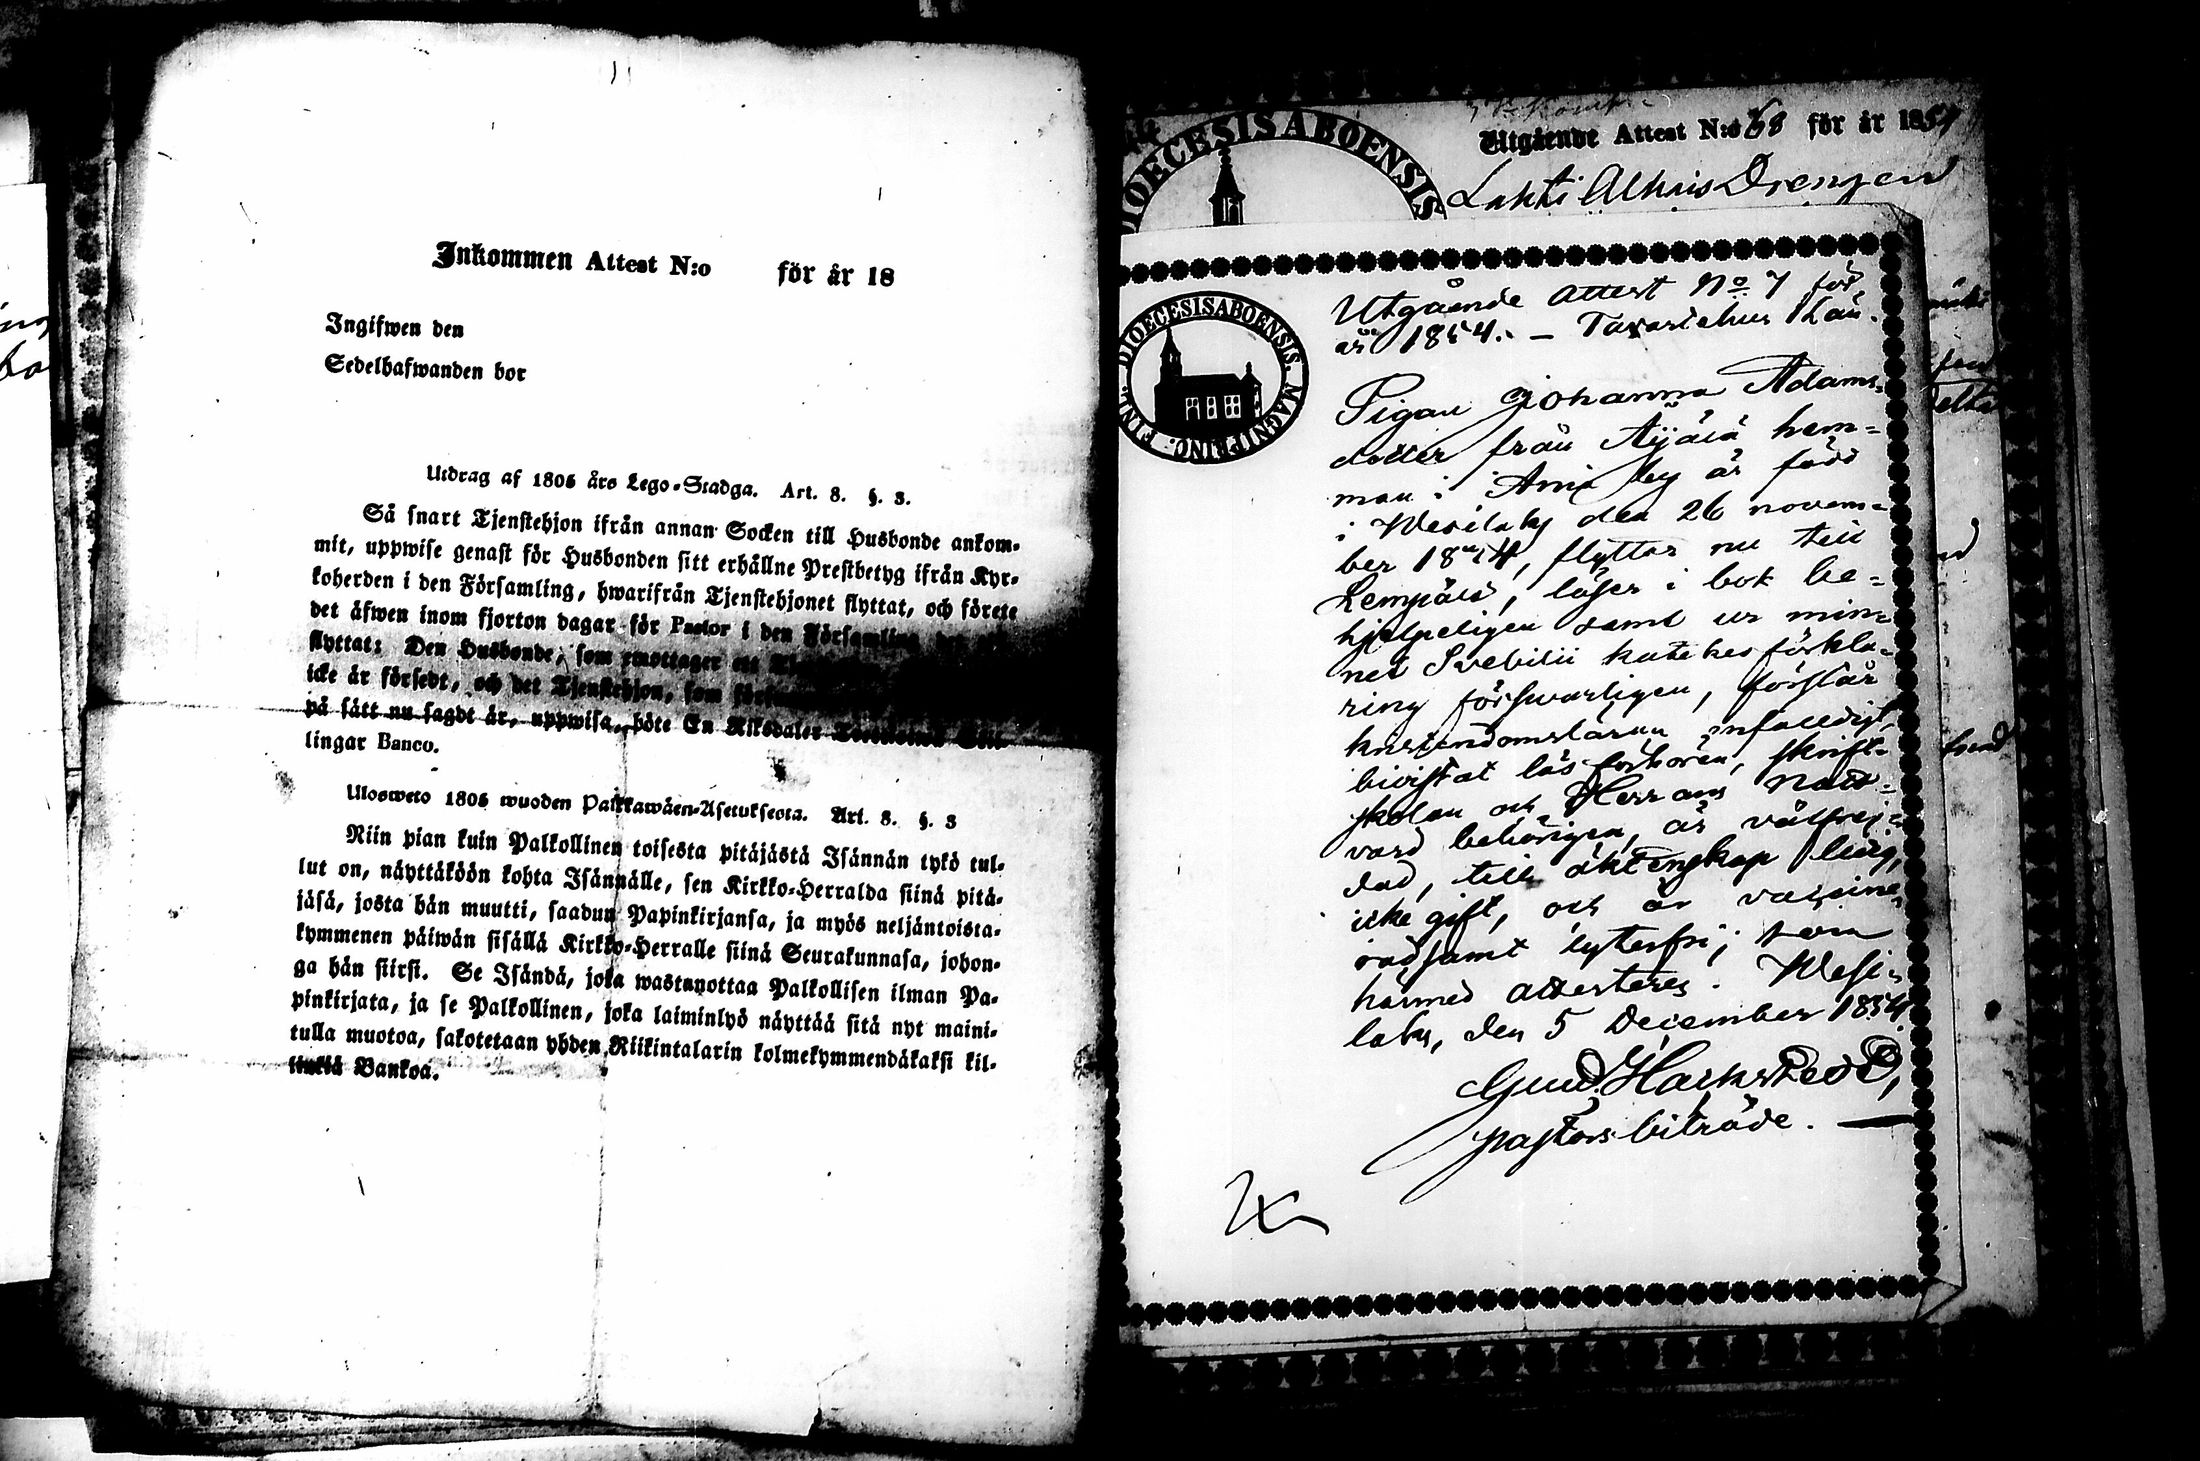 Inkommen Attest N:o för år 18
Ingifwen den
Sedelhafwanden bor
Utdrag af 1805 års Lego-Stadga. Art. 8. §. 3.
Så snart Tjenstehjon ifrån annan Socken till Husbonde ankom-
mit, uppwise genast för Husbonden sitt erhållne Prestbetyg ifrån Kyr-
koherden i den Församling, hwarifrån Tjenstehjonet flyttat, och förete
det äfwen inom fjorton dagar för Pastor i den Församling
flyttat; Den Husbonde, som emottager ett
icke är försedt, och det Tjenstehjon, som
på sätt nu sagdt är, uppwisa, böte En Riksdaler
lingar Banco.
Ulosweto 1805 wuoden Palkkawäen-Asetuksesta. Art. 8. §. 3
Niin pian kuin Palkollinen toisesta pitäjästä Isännän tykö tul-
lut on, näyttäköön kohta Isännälle, sen Kirkko-Herralda siinä pitä-
jäsä, josta hän muutti, saadun Papinkirjansa, ja myös neljäntoista-
kymmenen päiwän sisällä Kirkko-Herralle siinä Seurakunnasa, johon-
ga hän siirsi. Se Isändä, joka wastanottaa Palkollisen ilman Pa-
pinkirjata, ja se Palkollinen, joka laiminlyö näyttää sitä nyt maini-
tulla muotoa, sakotetaan yhden Riikintalarin kolmekymmendäkaksi kil-
linkiä Bankoa.
DIOECESIS ABOENSIS
Utgående Attest N:o 68 för år 1854
Lahti Alhais Drengen
DIOECESIS ABOENSIS. MAGNI PRINC. FINL.
Utgående attest No 7 för
år 1854. – Tavastehus Län.
Pigan Johanna Adams-
dotter från Äijälä hem-
man i by är född
i Wesilaks den 26 novem-
ber flyttar nu till
Lempälä, läser i bok be-
hjelpeligen samt ur min-
net Svebilii katekesförkla-
ring försvarligen, förstår
kristendomsläran enfaldigt,
bivistat läsförhören, skrift-
skolan och Herrans Natt-
vard behörigen, är välfrej-
dad, till äktenskap ledig,
icke gift, och är vaccine-
rad samt lyterfri; som
härmed attesteres. Wesi-
laks, den 5 December 1854.
Gust. Hacksted
pastorsbiträde. —